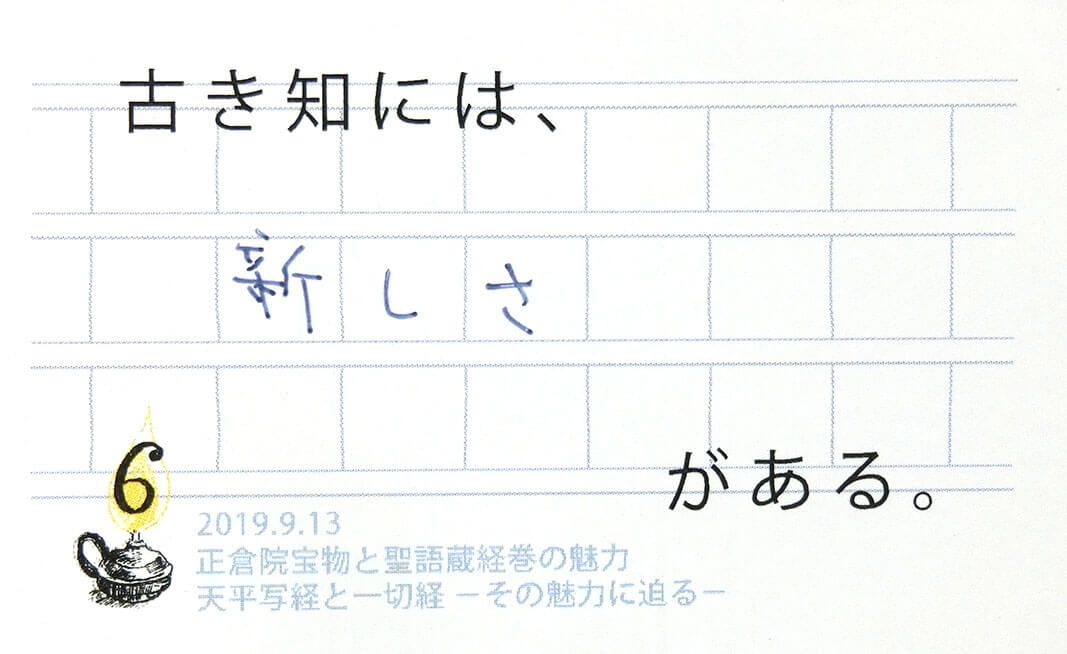 古き知には、
新しさ
がある。
6
2019.9.13
正倉院宝物と聖語蔵経巻の魅力
天平写経と一切経 －その魅力に迫る－